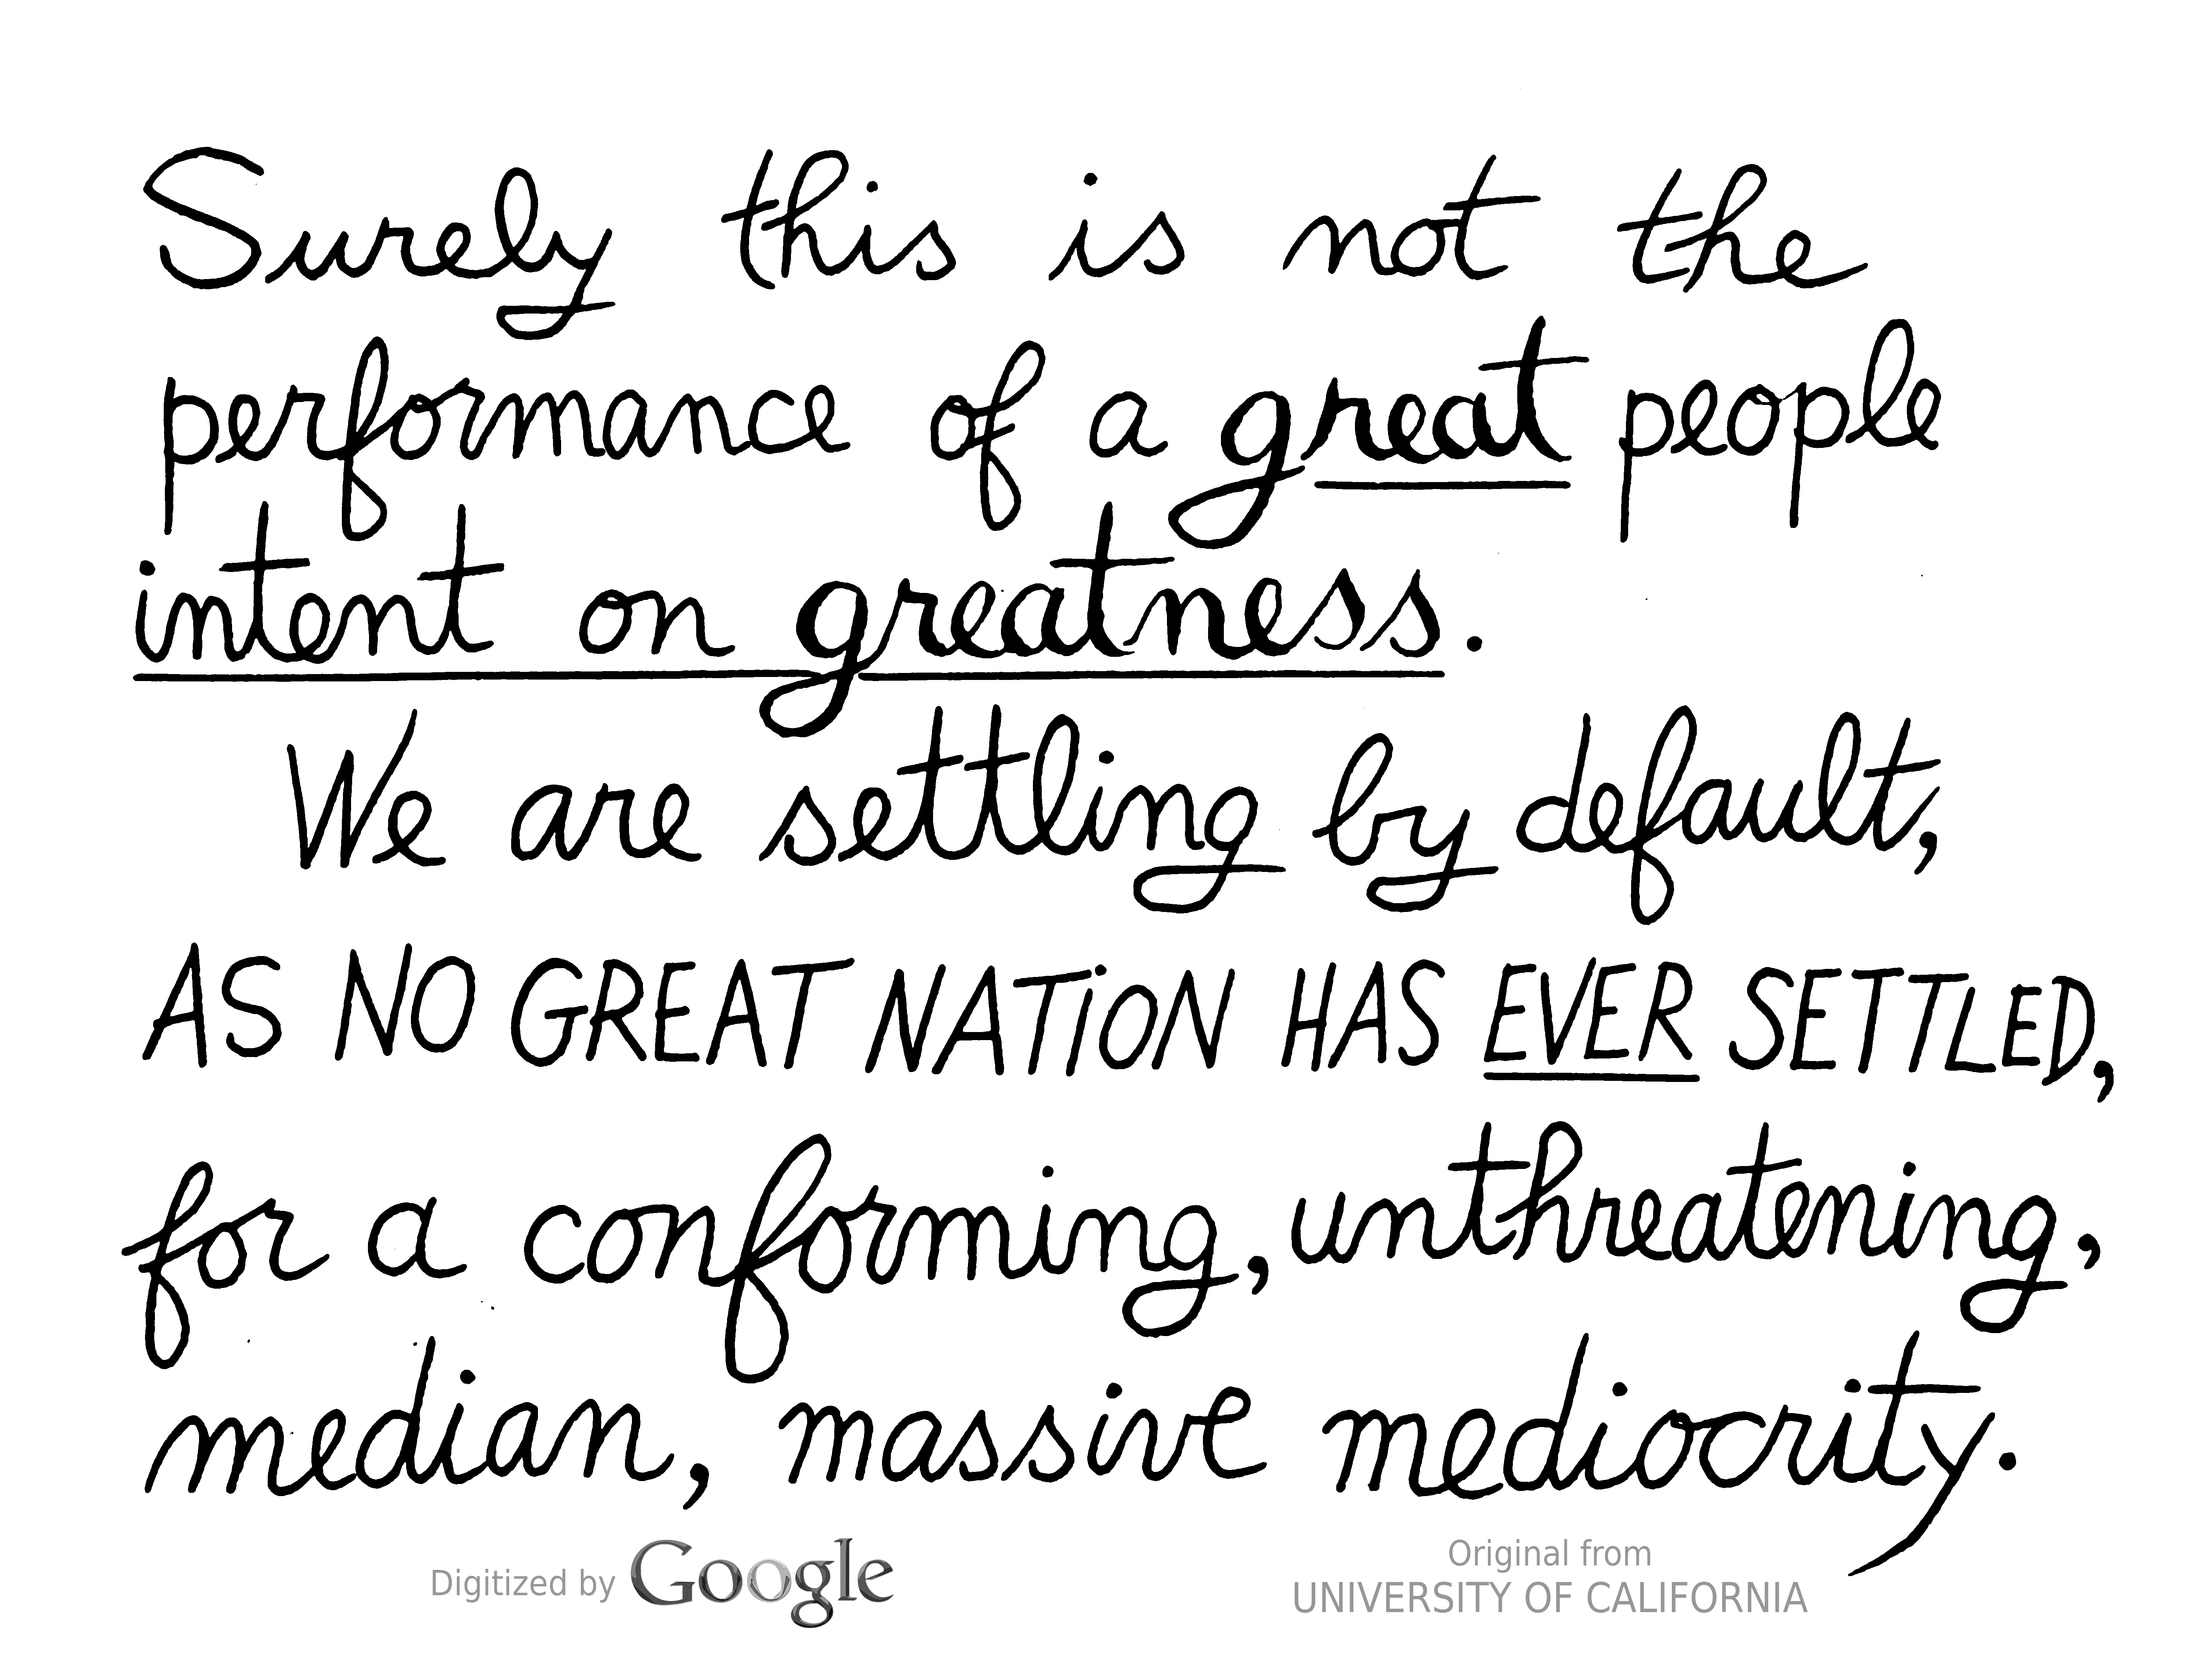 Surely this is not the
performance of a great people
intent on greatness.
We are settling by default,
AS NO GREAT NATION HAS EVER SETTLED,
for a conforming, unthreatening,
median, massive mediocrity.
Digitized by Google
Original from
UNIVERSITY OF CALIFORNIA